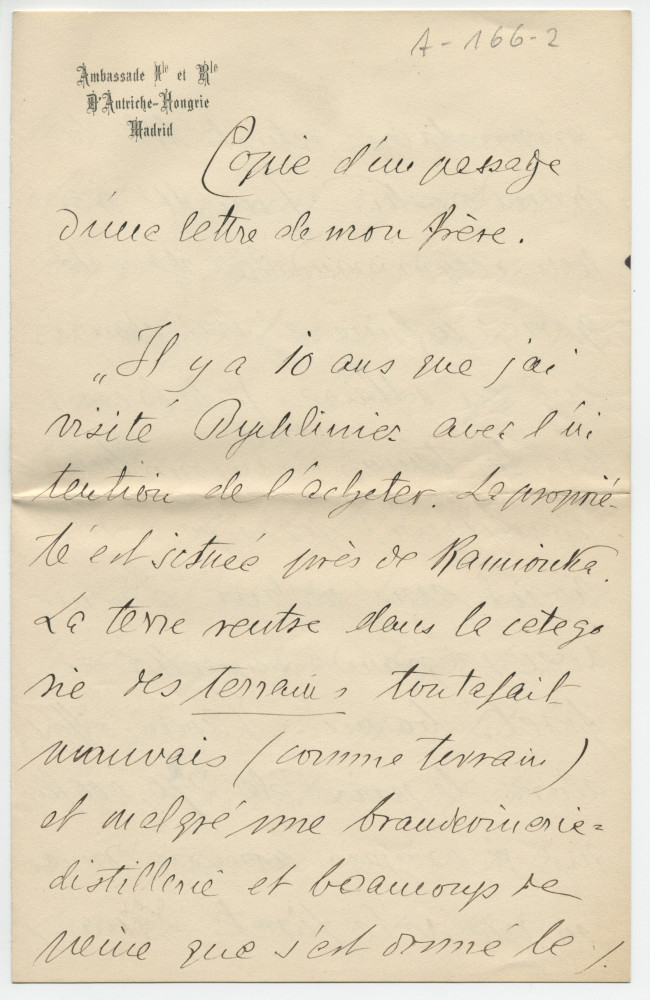 A-166-2
Ambassade Ile et Rle
D'Autriche-Hongrie
Madrid
Copie d'un passage
d'une lettre de mon frère.
„Il y a 10 ans que j'ai
visité Rychliniec avec l'in
tention de l'acheter. La proprié-
té est située près de Kamionka.
La terre rentre dans la catego
rie des terrains toutafait
mauvais (comme terrain)
et malgré une brandevinerie=
distillerie et beaucoup de
peine que s'est donné le /.